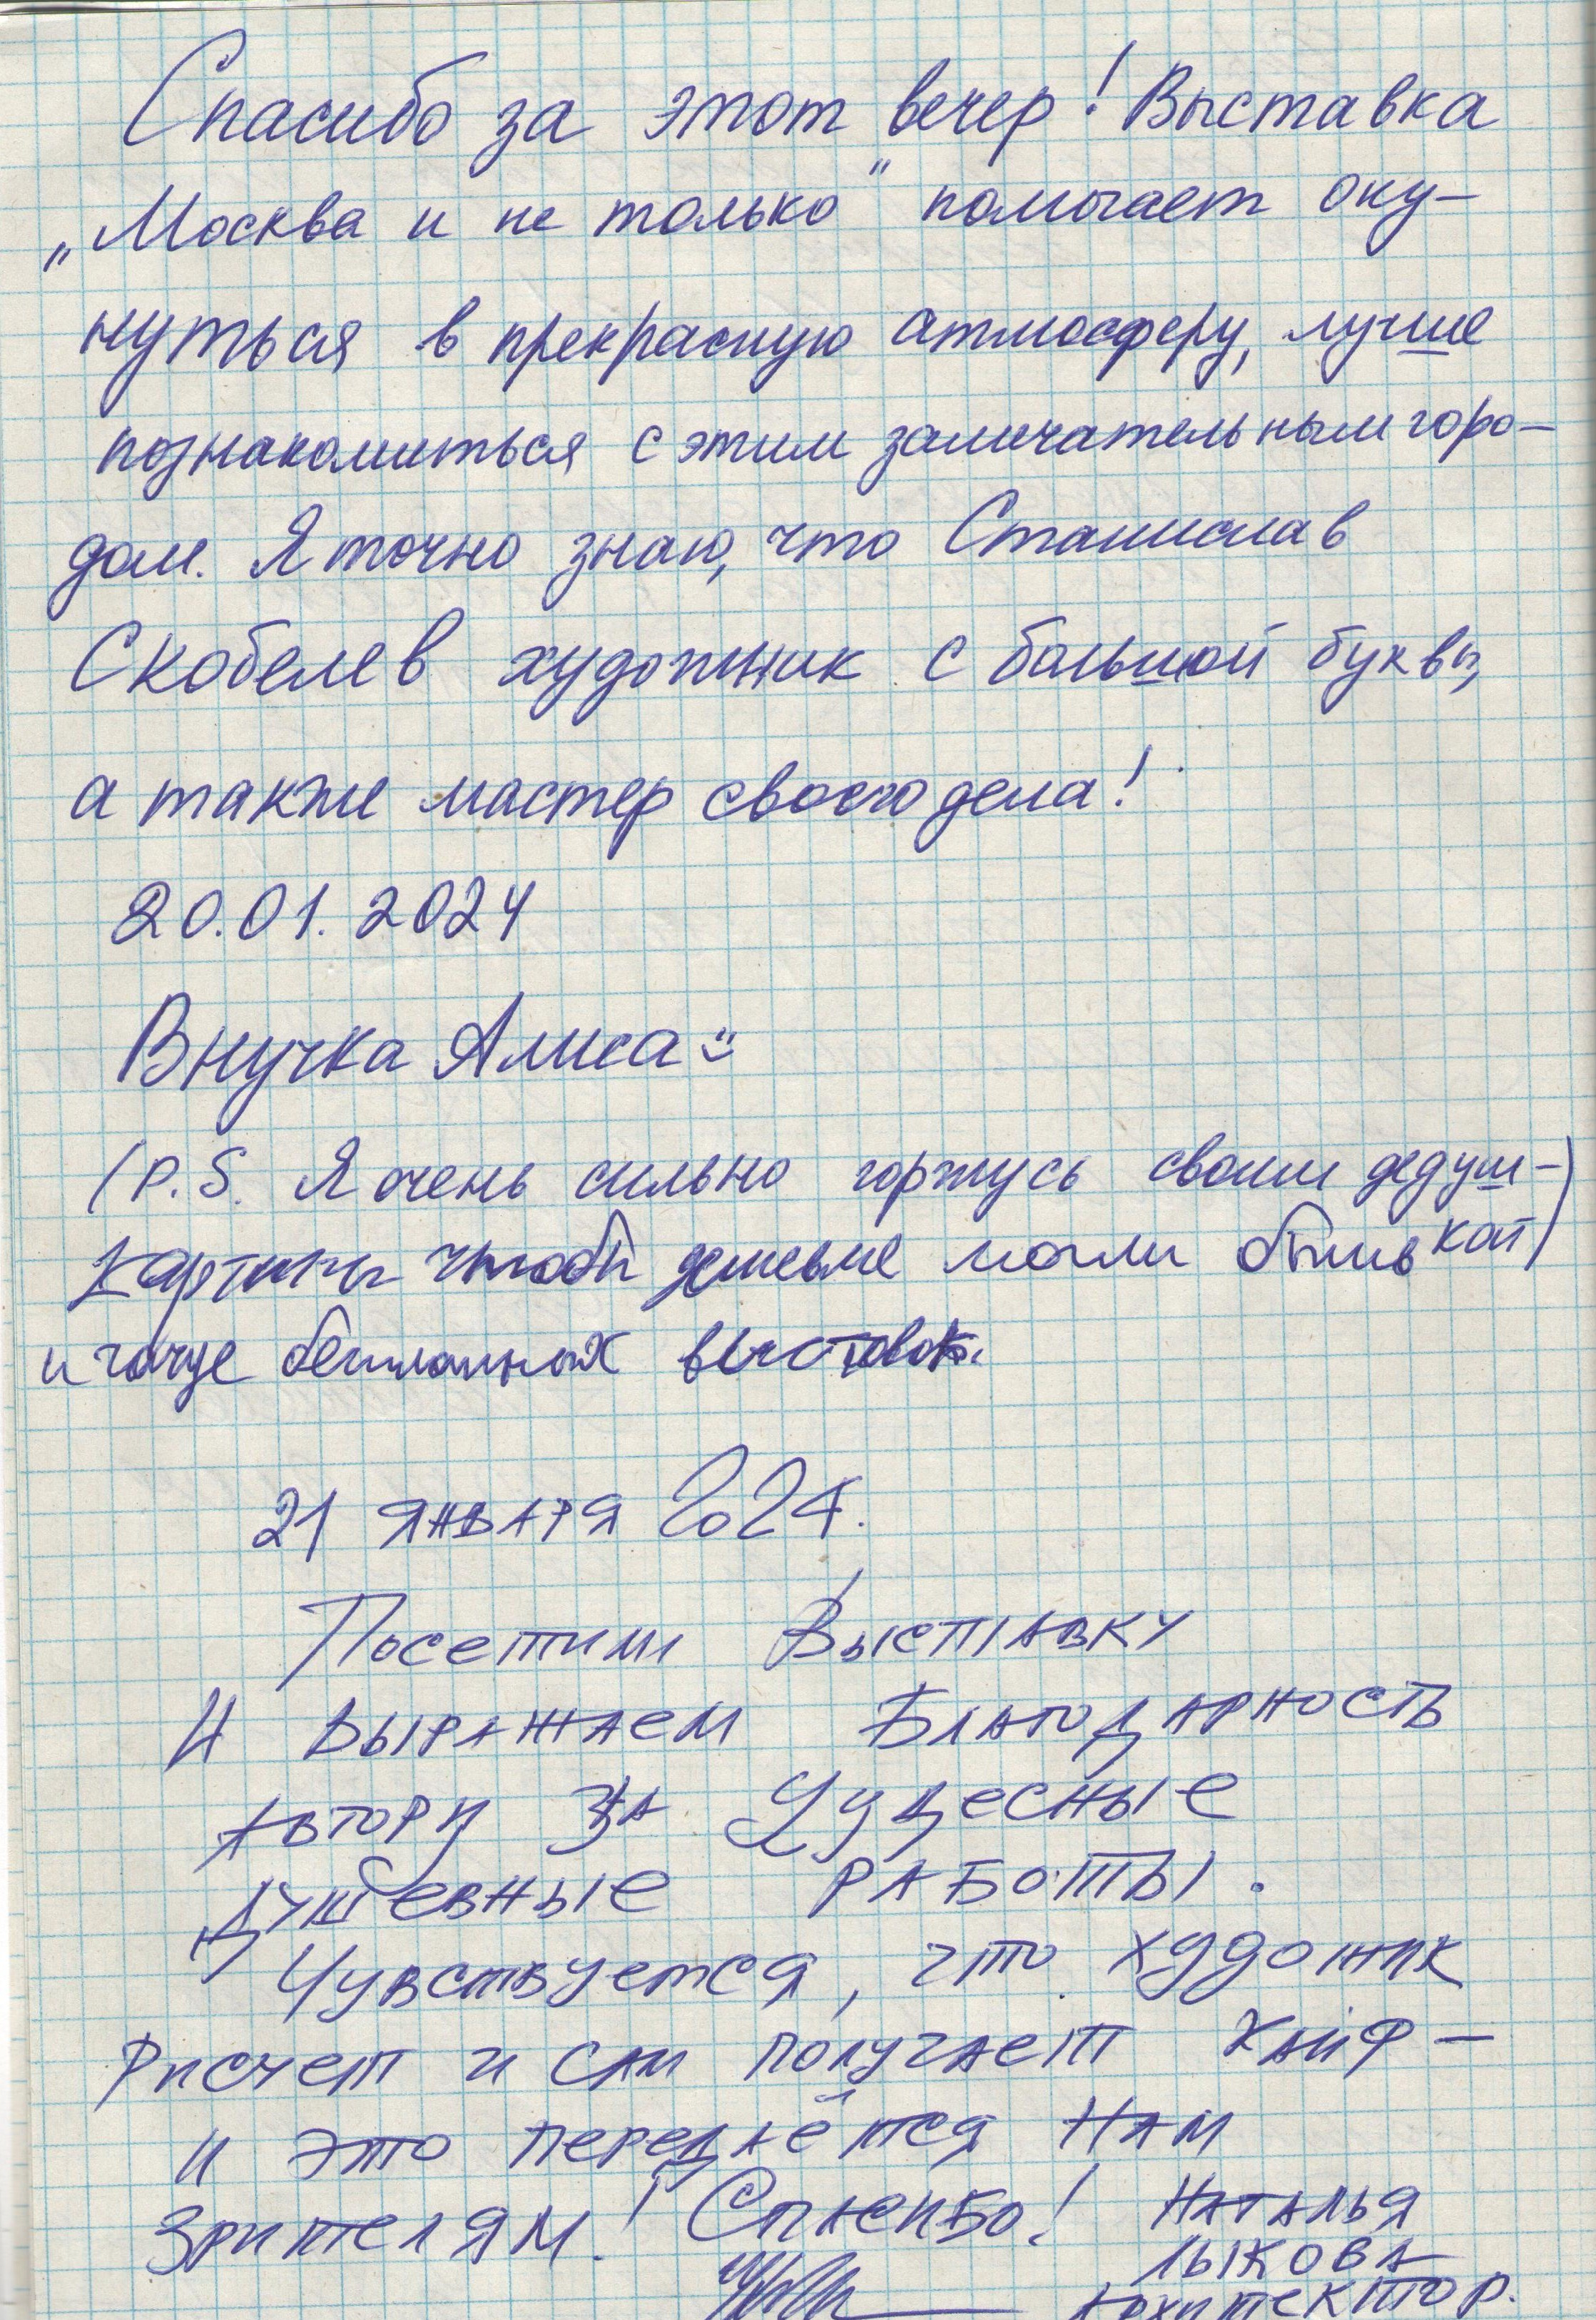 Спасибо за этот вечер! Выставка
„Москва и не только" помогает оку-
нуться в прекрасную атмосферу, лучше
познакомиться с этим замечательным горо-
дом. Я точно знаю, что Станислав
Скобелев художник с большой буквы,
а также мастер своего дела!
20.01.2024
Внучка Алиса
(P.S. Я очень сильно горжусь своим дедуш-
кой)
Картины чтобы дешевле могли быть
и чаще бесплатных выставок.
21 января 2024.
Посетили Выставку
и выражаем Благодарность
автору за Чудесные
душевные работы.
Чувствуется, что художник
рисует и сам получает кайф-
и это передаётся нам
зрителям! Спасибо! Наталья
Лыкова
архитектор.